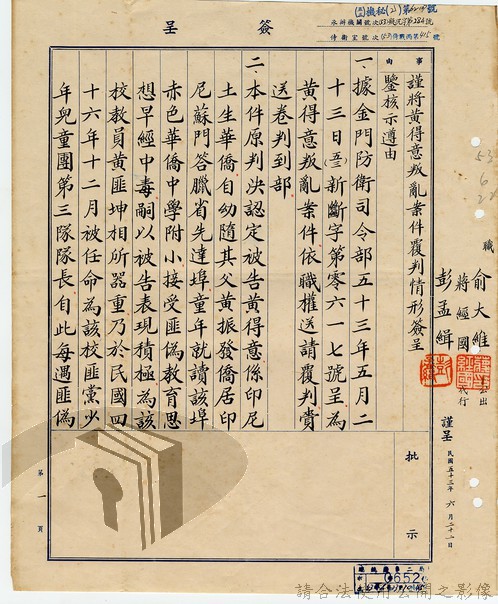 簽呈
事由
謹將黃得意叛亂案件覆判情形簽呈
鑒核示遵由
一、據金門防衛司令部五十三年五月二
十三日新斷字第零六一七號呈為
黃得意叛亂案件依職權送請覆判賫
送卷判到部
二、本件原判決認定被告黃得意係印尼
土生華僑自幼隨其父黃振發僑居印
尼蘇門答臘省先達埠童年就讀該埠
赤色華僑中學附小接受匪偽教育思
想早經中毒嗣以被告表現積極為該
校教員黃匪坤相所器重乃於民國四
十六年十二月被任命為該校匪黨少
年兒童團第三隊隊長自此每遇匪偽
職
俞大維
蔣經國
彭孟緝
謹呈
民國五十三年六月二十二日
批示
第一頁
0652
請合法使用公開之影像